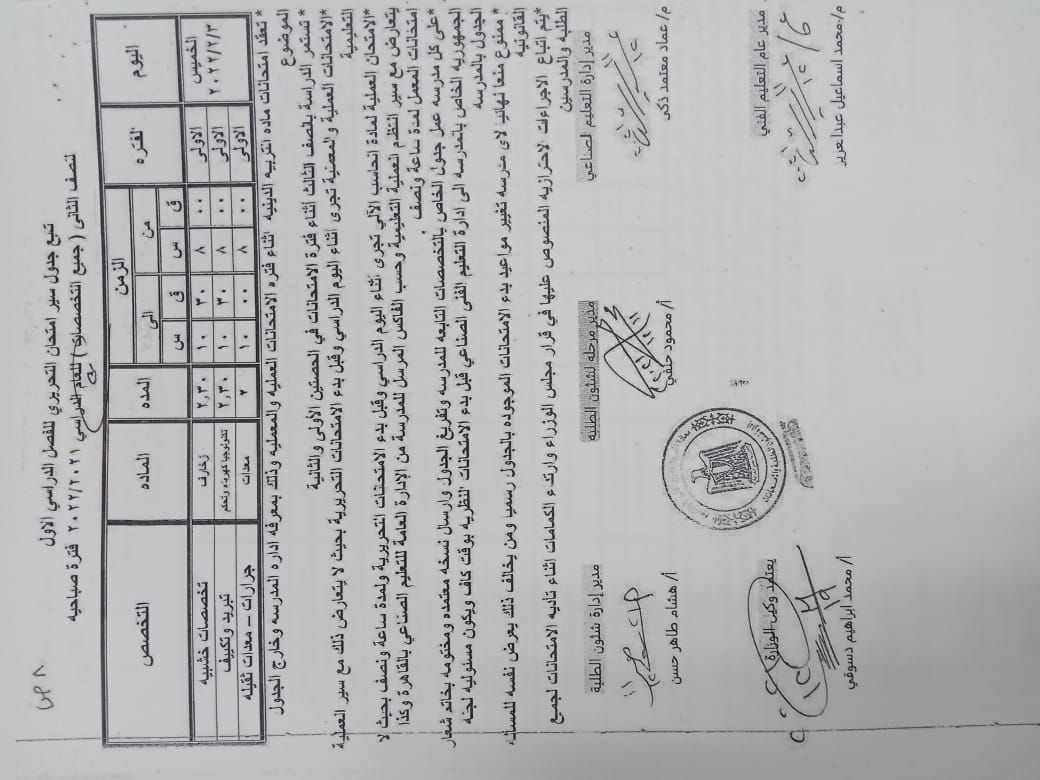 ص ٨
تبع جدول سير امتحان التحريري للفصل الدراسي الاول
لنصف الثانى ( جميع التخصصات ) للعام الدراسي ٢٠٢٢/٢٠٢١ فترة صباحيه
اليوم لفتره الزمن المده الماده التخصص
من الى
ق س ق س
الخميس ٢٠٢٢/٢/٣
الاولى ٠٠ ٨ ٣٠ ١٠ ٢,٣٠ زخارف تخصصات خشبيه
الاولى ٠٠ ٨ ٣٠ ١٠ ٢,٣٠ تكنولوجيا كهرباء وتحكم تبريد وتكييف
الاولى ٠٠ ٨ ٠٠ ١٠ ٢ معدات جرارات – معدات ثقيله
* تعقد امتحانات ماده التربيه الدينيه اثناء فتره الامتحانات العمليه والمعمليه وذلك بمعرفه اداره المدرسه وخارج الجدول
الموضوع
* تستمر الدراسة بلصف الثالث اثناء فترة الامتحانات في الحصتين الأولى والثانية
*الامتحانات العملية والمعملية تجرى اثناء اليوم الدراسي وقبل بدء الامتحانات التحريرية بحيث لا يتعارض ذلك مع سير العملية
التعليمية
*الامتحان العملية لمادة الحاسب الآلي تجرى اثناء اليوم الدراسي وقبل بدء الامتحانات التحريرية ولمدة ساعة ونصف بحيث لا
يتعارض مع سير انتظم العملية التعليمية وحسب الفاكس المرسل للمدرسة من الإدارة العامة للتعليم الصناعي بالقاهرة وكذا
امتحانات المعمل لمدة ساعة ونصف
*على كل مدرسه عمل جدول الخاص بالتخصصات التابعه للمدرسه وتفريغ الجدول وارسال نسخه معتمده ومختومه بخاتم شعار
الجمهوريه الخاص بالمدرسه الى ادارة التعليم الفنى الصناعي قبل بدء الامتحانات النظريه بوقت كاف ويكون مسئوليه لجنه
الجدول بالمدرسه
* ممنوع منعا نهائيا لاى مدرسه تغيير مواعيد بدء الامتحانات الموجوده بالجدول رسميا ومن يخالف ذلك يعرض نفسه للمسائله
القانونيه
*يتم اتباع الاجراءات لاحترازيه المنصوص عليها في قرار مجلس الوزراء وارتداء الكمامات اثناء تاديه الامتحانات لجميع
الطلبه والمدرسين
مدير إدارة التعليم لصناعي مدير مرحله لشئون الطلبه مدير إدارة شئون الطلبة
م/ عماد معتمد ذكى أ/ محمود حنفي أ/ هشام طاهر حسن
مدير عام التعليم الفني يعتمد وكيل الوزارة
م/ محمد اسماعيل عبدالعزيز أ/ محمد ابراهيم دسوقي